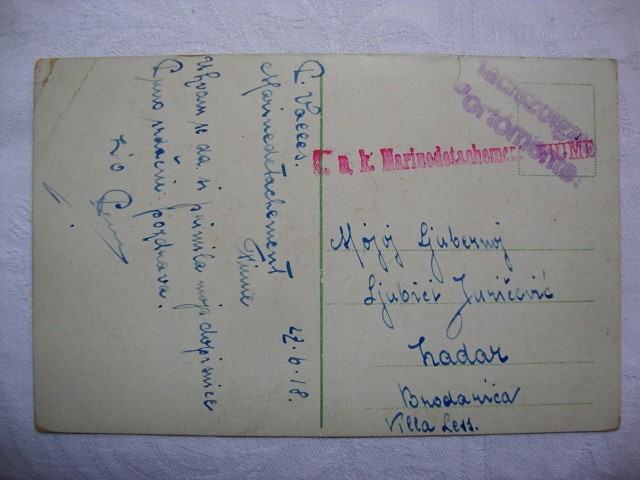 P. Valles.
Marinedetachement
Fiume
22.6.18.
Uhvam se da si primila moju dopisnicu
Puno srdačni pozdrava.
K. u. k. Marinedetachement FIUME
Mojoj Ljubernoj
Ljubici Juričević
Zadar
Brodarica
Villa Less.